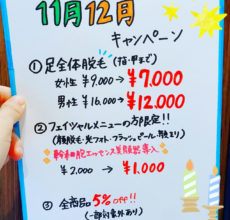 11月12月
キャンペーン
①足全体脱毛(指・甲まで)
女性 ¥9.000→¥7.000
男性 ¥16.000→¥12.000
②フェイシャルメニューの方限定!!
(顔脱毛・光フォト・フラッシュピール・
幹細胞エッセンス美顔器導入
¥2.000→¥1.000
③全商品5%off!!
(一部対象外あり)